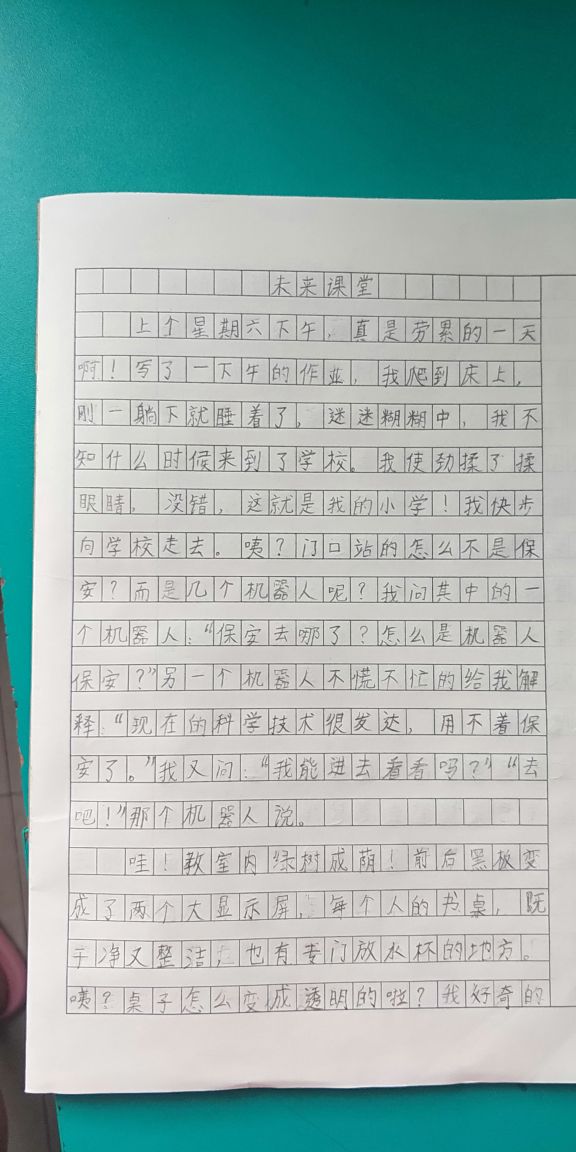 未来课堂
上个星期六下午，真是劳累的一天
啊！写了一下午的作业，我爬到床上，
刚一躺下就睡着了，迷迷糊糊中，我不
知什么时候来到了学校。我使劲揉了揉
眼睛，没错，这就是我的小学！我快步
向学校走去。咦？门口站的怎么不是保
安？而是几个机器人呢？我问其中的一
个机器人：“保安去哪了？怎么是机器人
保安？”另一个机器人不慌不忙的给我解
释：“现在的科学技术很发达，用不着保
安了。”我又问：“我能进去看看吗？”“去
吧！”那个机器人说。
哇！教室内绿树成荫！前后黑板变
成了两个大显示屏，每个人的书桌，既
干净又整洁，也有专门放水杯的地方。
咦？桌子怎么变成透明的啦？我好奇的